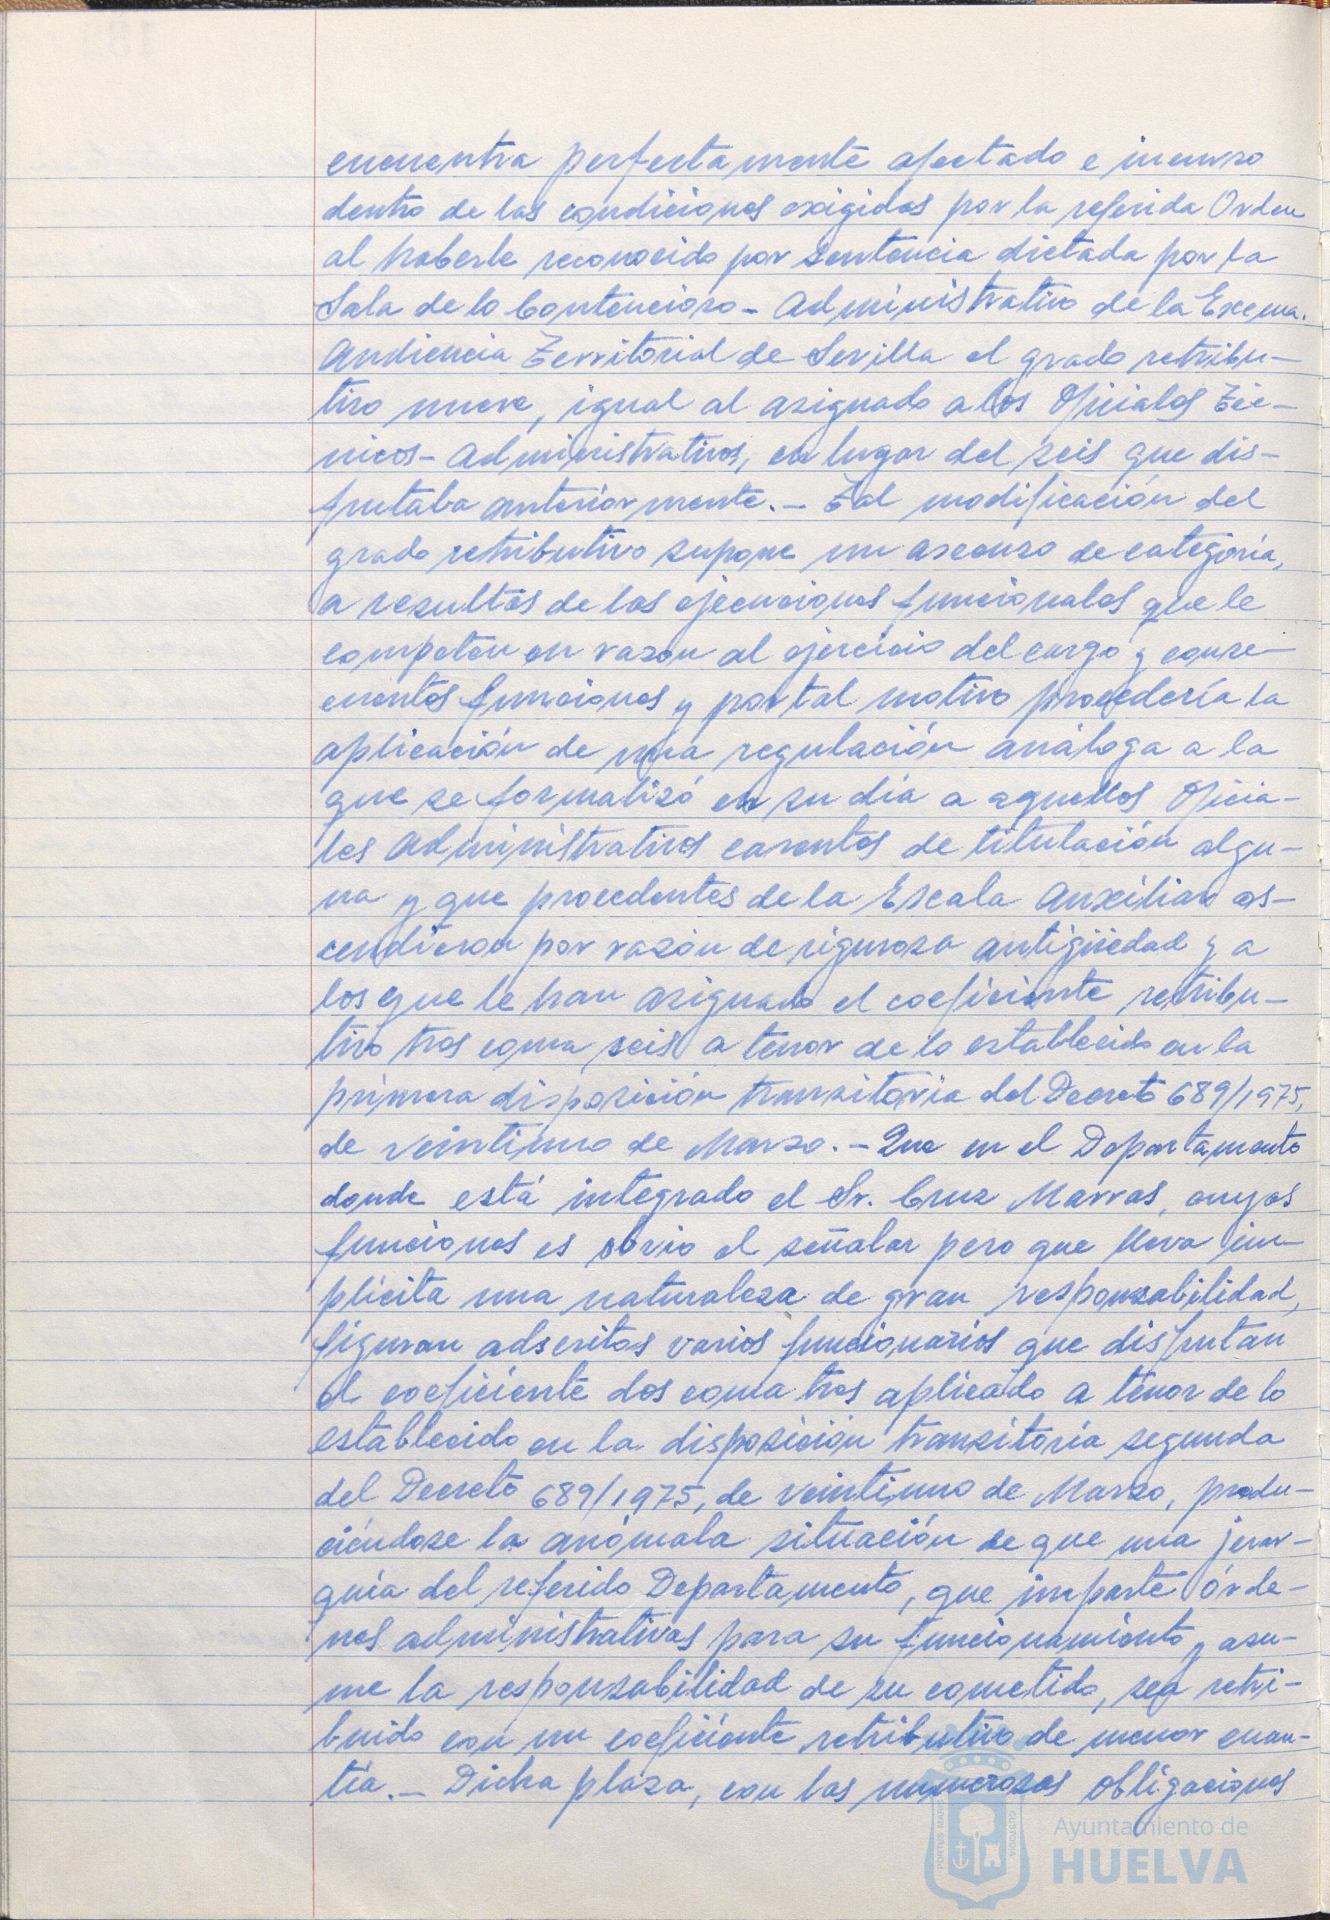 encuentra perfectamente afectado e incurso
dentro de las condiciones exigidas por la referida Orden
al haberle reconocido por Sentencia dictada por la
Sala de lo Contencioso-Administrativo de la Excma.
Audiencia Territorial de Sevilla el grado retribu-
tivo nueve, igual al asignado a los Oficiales Téc-
nicos-Administrativos, en lugar del seis que dis-
frutaba anteriormente.- Tal modificación del
grado retributivo supone un ascenso de categoría,
a resultas de las ejecuciones funcionales que le
competen en razón al ejercicio del cargo y conse-
cuentes funciones y por tal motivo procedería la
aplicación de una regulación análoga a la
que se formalizó en su día a aquellos Oficia-
les Administrativos carentes de titulación algu-
na y que procedentes de la Escala Auxiliar as-
cendieron por razón de rigurosa antigüedad y a
los que le han asignado el coeficiente retribu-
tivo tres coma seis a tenor de lo establecido en la
primera disposición transitoria del Decreto 689/1975,
de veintiuno de Marzo.- Que en el Departamento
donde está integrado el Sr. Cruz Marras, cuyas
funciones es obvio el señalar pero que lleva im-
plícita una naturaleza de gran responsabilidad,
figuran adscritos varios funcionarios que disfrutan
el coeficiente dos coma tres aplicado a tenor de lo
establecido en la disposición transitoria segunda
del Decreto 689/1975, de veintiuno de Marzo, produ-
ciéndose la anómala situación de que una jerar-
quía del referido Departamento, que imparte órde-
nes administrativas para su funcionamiento y asu-
me la responsabilidad de su cometido, sea retri-
buido con un coeficiente retributivo de menor cuan-
tía.- Dicha plaza, con las numerosas obligaciones
PORTUS MARIS
CUSTODIA
Ayuntamiento de
HUELVA